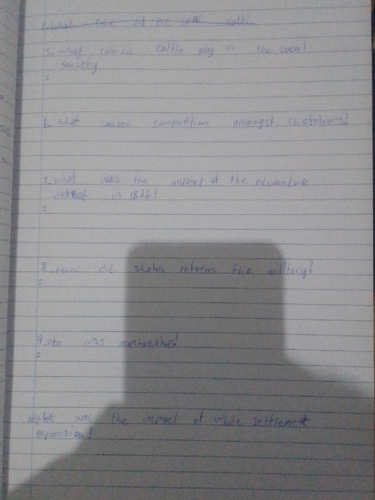 5. what role did cattle play in the local
society
=
6. what caused competition amongst chiefdoms?
7. what was the impact of the
in 1826?
=
8. How did shaka reform the military?
=
9. who was moshoeshoe?
=
10. what was the impact of white settlement
expansion?